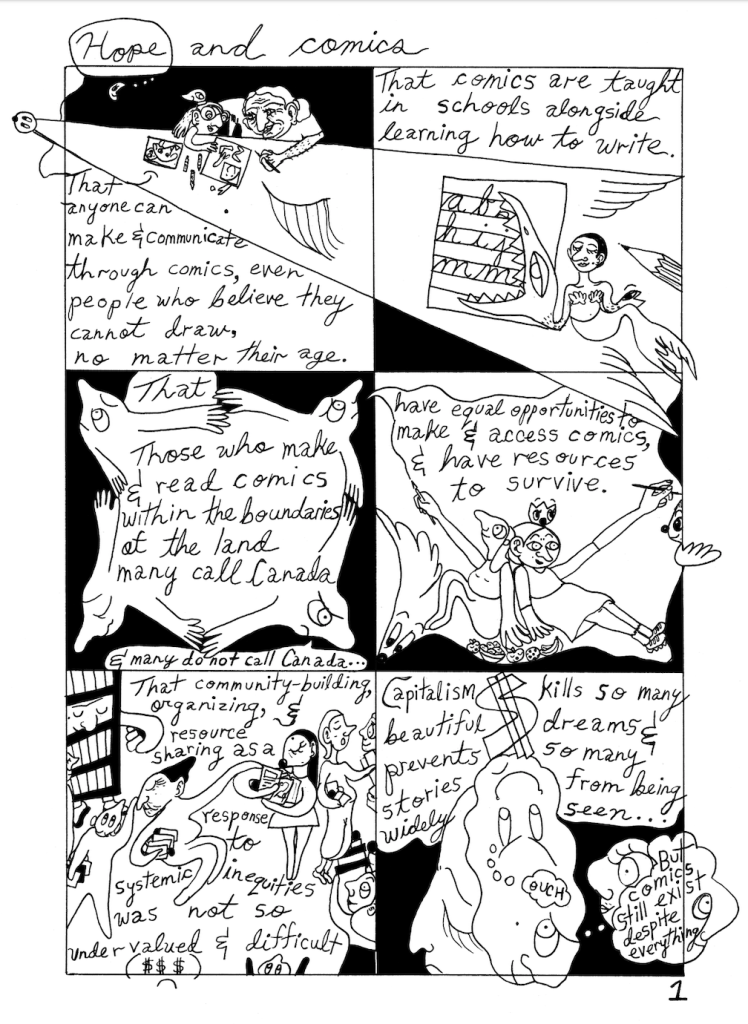 Hope and comics
That
anyone can
make & communicate
through comics, even
people who believe they
cannot draw,
no matter their age.
That comics are taught
in schools alongside
learning how to write.
That
Those who make
& read comics
within the boundaries
of the land
many call Canada
& many do not call Canada...
have equal opportunities to
make & access comics,
& have resources
to survive.
That community-building,
organizing, &
resource
sharing as a
response
to
systemic inequities
was not so
undervalued & difficult
($$$)
Capitalism kills so many
beautiful dreams &
prevents so many
stories from being
widely seen...
OUCH
But
comics
still exist
despite
everything
1